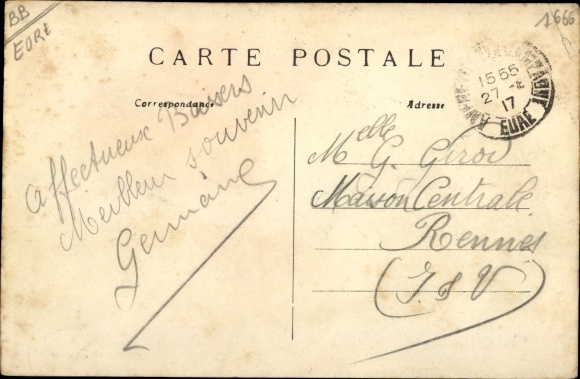 BB
EURE
1666
CARTE POSTALE
Correspondance
Adresse
15 55
27 -2
17
EURE
Affectueux Baisers
Meilleur souvenir
Germaine
Melle G. Girod
Maison Centrale
Rennes
(I & V)